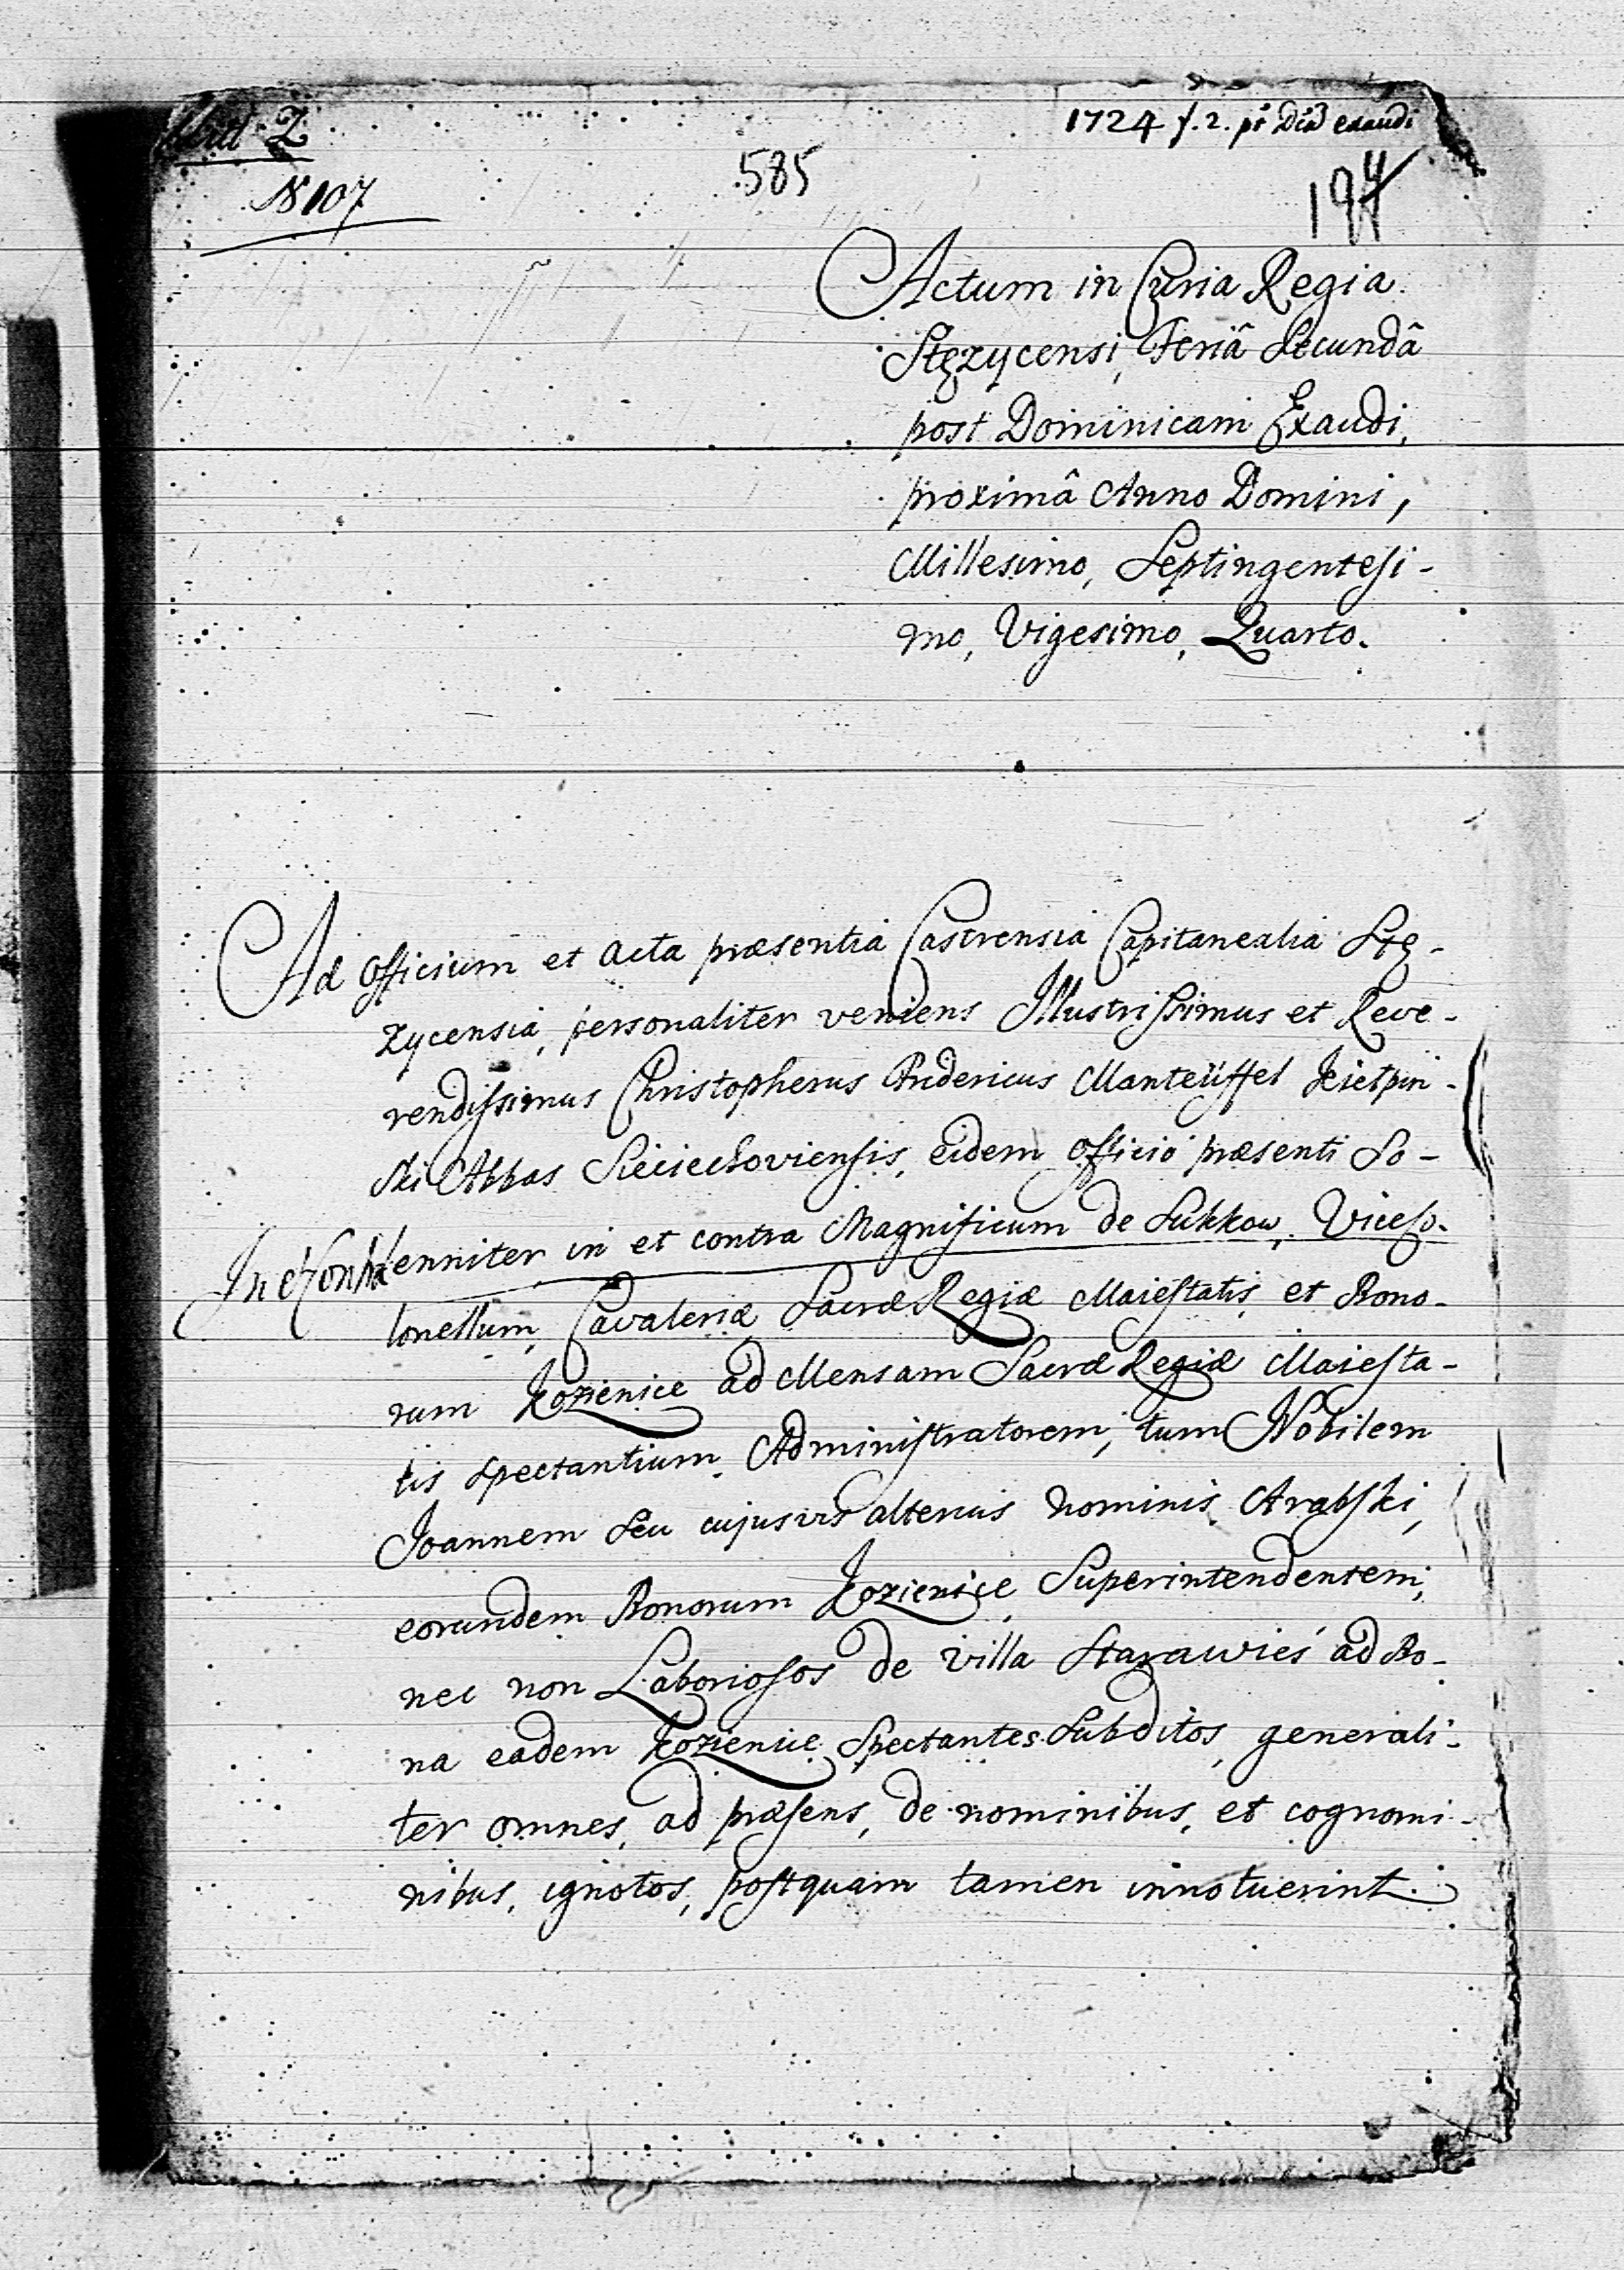 1724 f. 2. pt Dcā exaudi
N 107
585
194
Actum in Curia Regia
Stęzycensi, Feriâ Secundâ
post Dominicam Exaudi,
proximâ Anno Domini,
Millesimo, Septingentesi-
mo, Vigesimo, Quarto.
Ad Officium et Acta præsentia Castrensia Capitanealia Stę-
zycensia, personaliter veniens Illustrissimus et Reve-
rendissimus Christophorus Fridericus Manteüffel Kielpin-
ski Abbas Sieciechoviensis, eidem Officio præsenti So-
lenniter in et contra Magnificum de Sukkow, Viceko-
lonellum, Cavaleriæ Sacræ Regiæ Maiestatis, et Bono-
rum Kozienice ad Mensam Sacræ Regiæ Maiesta-
tis Spectantium, Administratorem, tum Nobilem
Joannem seu cujusvis alterius nominis, Arabski,
eorundem Bonorum Kozienice, Superintendentem,
nec non Laboriosos de villa Starawieś ad Bo-
na eadem Kozienice Spectantes Subditos, generali-
ter omnes, ad præsens, de nominibus, et cognomi-
nibus, ignotos, postquam tamen innotuerint.